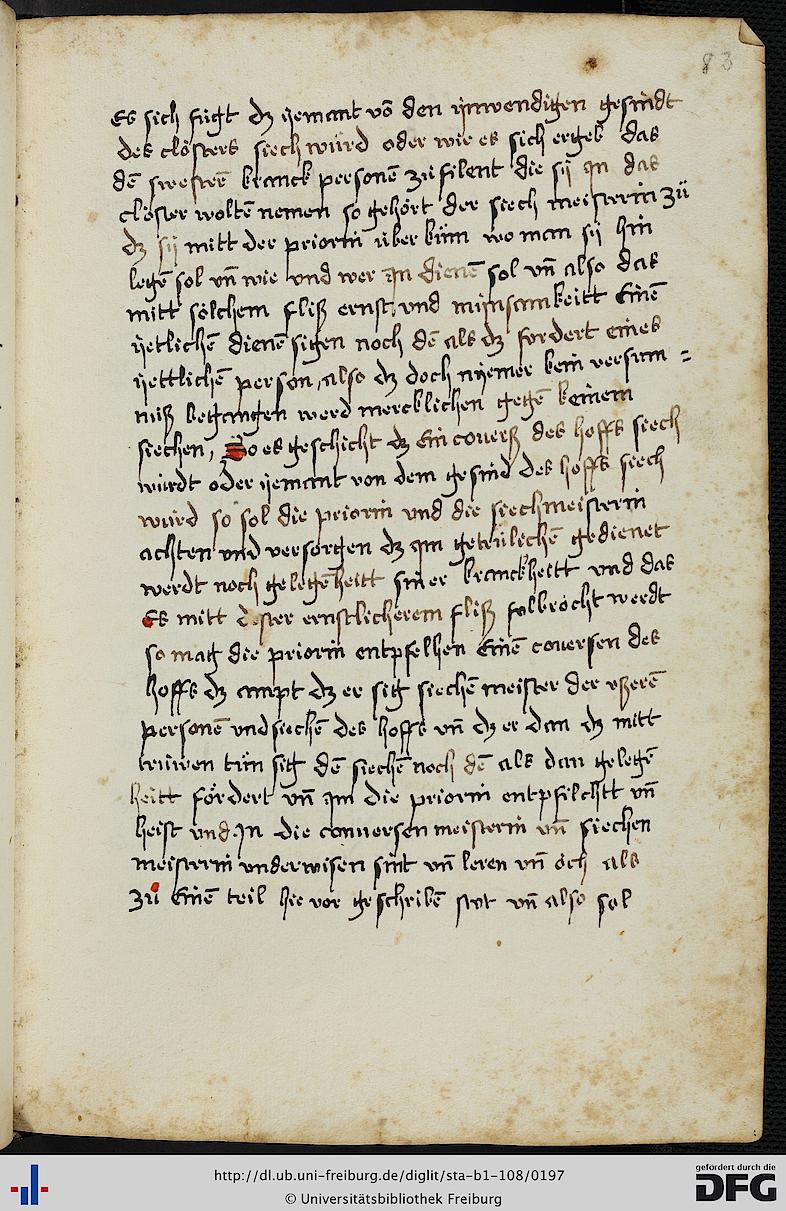 83
Es sich fügt dz yemant vō den ynwendigen gesindt
des closters siech würd oder wie es sich ergeb das
dē swesterē kranck personē zü filent die sÿ In das
closter woltē nemen so gehört der siech meisterin zü
dz sÿ mitt der priorin über küm wo man sÿ hin
legē sol vn̄ wie vnd wer In dienē sol vn̄ also das
mitt sölchem fliß ernst vnd minsamkeitt Einē
yetlichē dienē sigen noch dē als dz fordert eines
yettlichē person, also dz doch nyemer kein versum =
niß begangen werd mercklichen gegē keinem
siechen, So es geschicht dz Ein couerß des hoffs siech
würdt oder yemant von dem gesind des hoffs siech
würd so sol die priorin vnd die siechmeisterin
achten vnd versorgen dz Im getrülichē gedienet
werdt noch gelegēheitt siner kranckheitt vnd das
Es mitt dester ernstlicherem fliß folbrocht werdt
so mag die priorin entpfelhen Einē couersen des
hoffs dz ampt dz er sig siechē meister der vßerē
personē vnd siechē des hoffs vn̄ dz er dan dz mitt
trüwen tün sig dē siechē noch dē als dan gelegē
heitt fördert vn̄ Im die priorin entpfilchtt vn̄
heist vnd In die conuersen meisterin vn̄ siechen
meisterin vnderwisen sint vn̄ leren vn̄ öch als
zü Einē teil hie vor geschribē stot vn̄ also sol
http://dl.ub.uni-freiburg.de/diglit/sta-b1-108/0197
© Universitätsbibliothek Freiburg
gefördert durch die
DFG